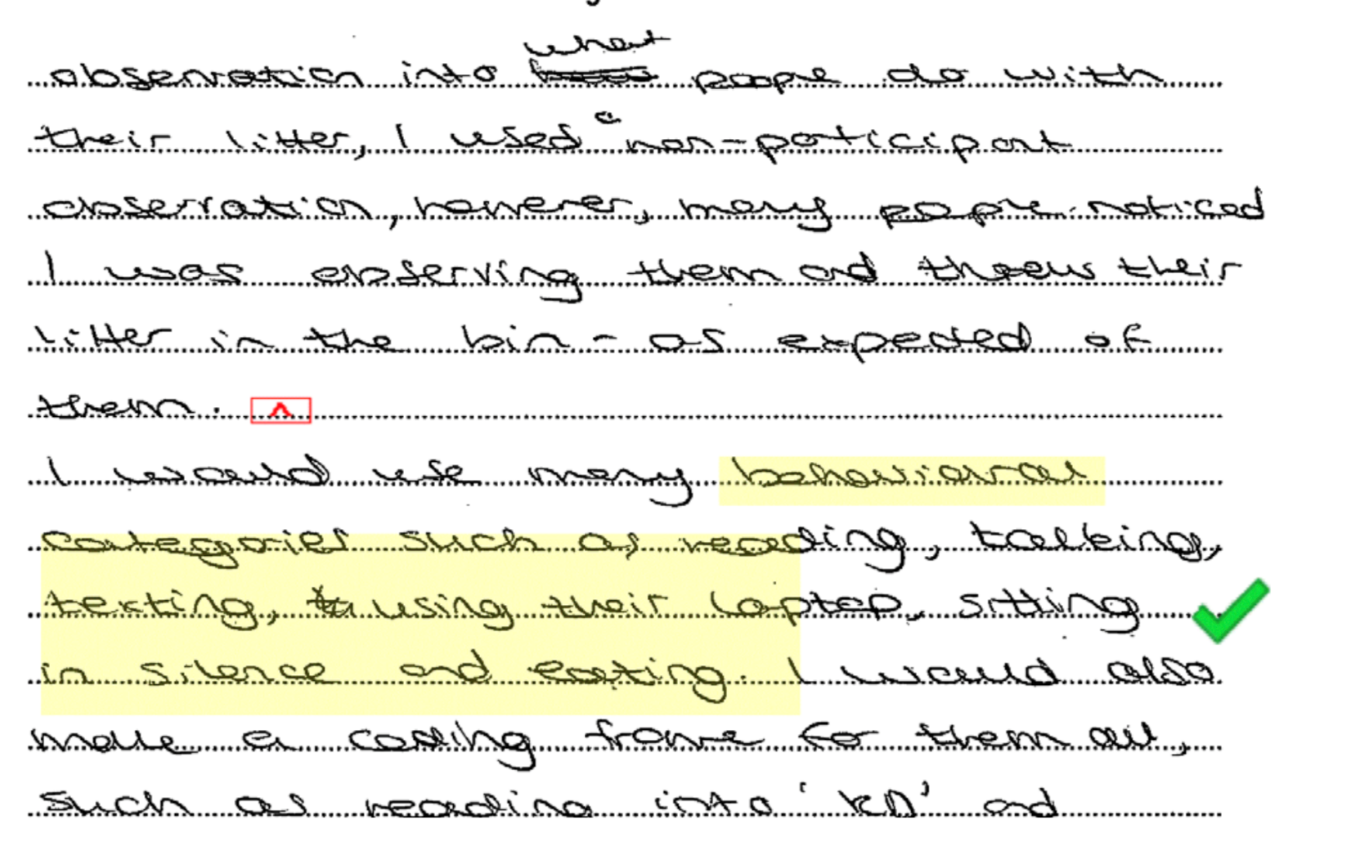 observation into what peope do with
their litter, I used a non-participant
observation, however, many people noticed
I was observing them and threw their
litter in the bin - as expected of
them.
I would use many behavioural
categories such as reading, talking,
texting, using their laptop, sitting
in silence and eating. I would also
make a coding frame for them all,
such as reading into 'RD' and